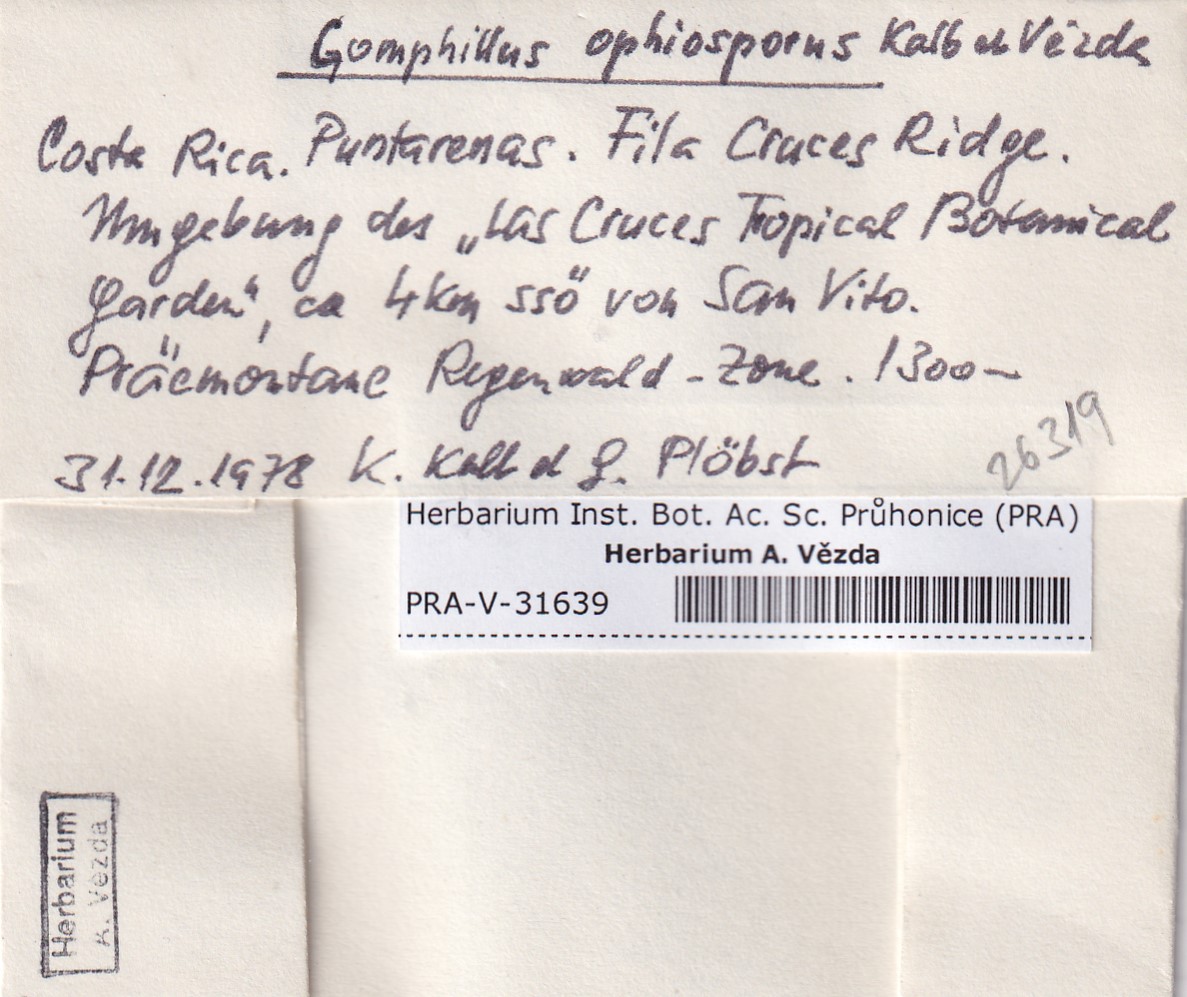 Gomphillus ophiosporus Kalb et Vězda
Costa Rica. Puntarenas. Fila Cruces Ridge.
Umgebung des „Las Cruces Tropical Botanical
Garden“, ca 4km ssö von San Vito.
Präemontane Regenwald-Zone. 1300
26319
31.12.1978 K. Kalb et G. Plöbst
Herbarium Inst. Bot. Ac. Sc. Průhonice (PRA)
Herbarium A. Vězda
PRA-V-31639
Herbarium
A. Vězda